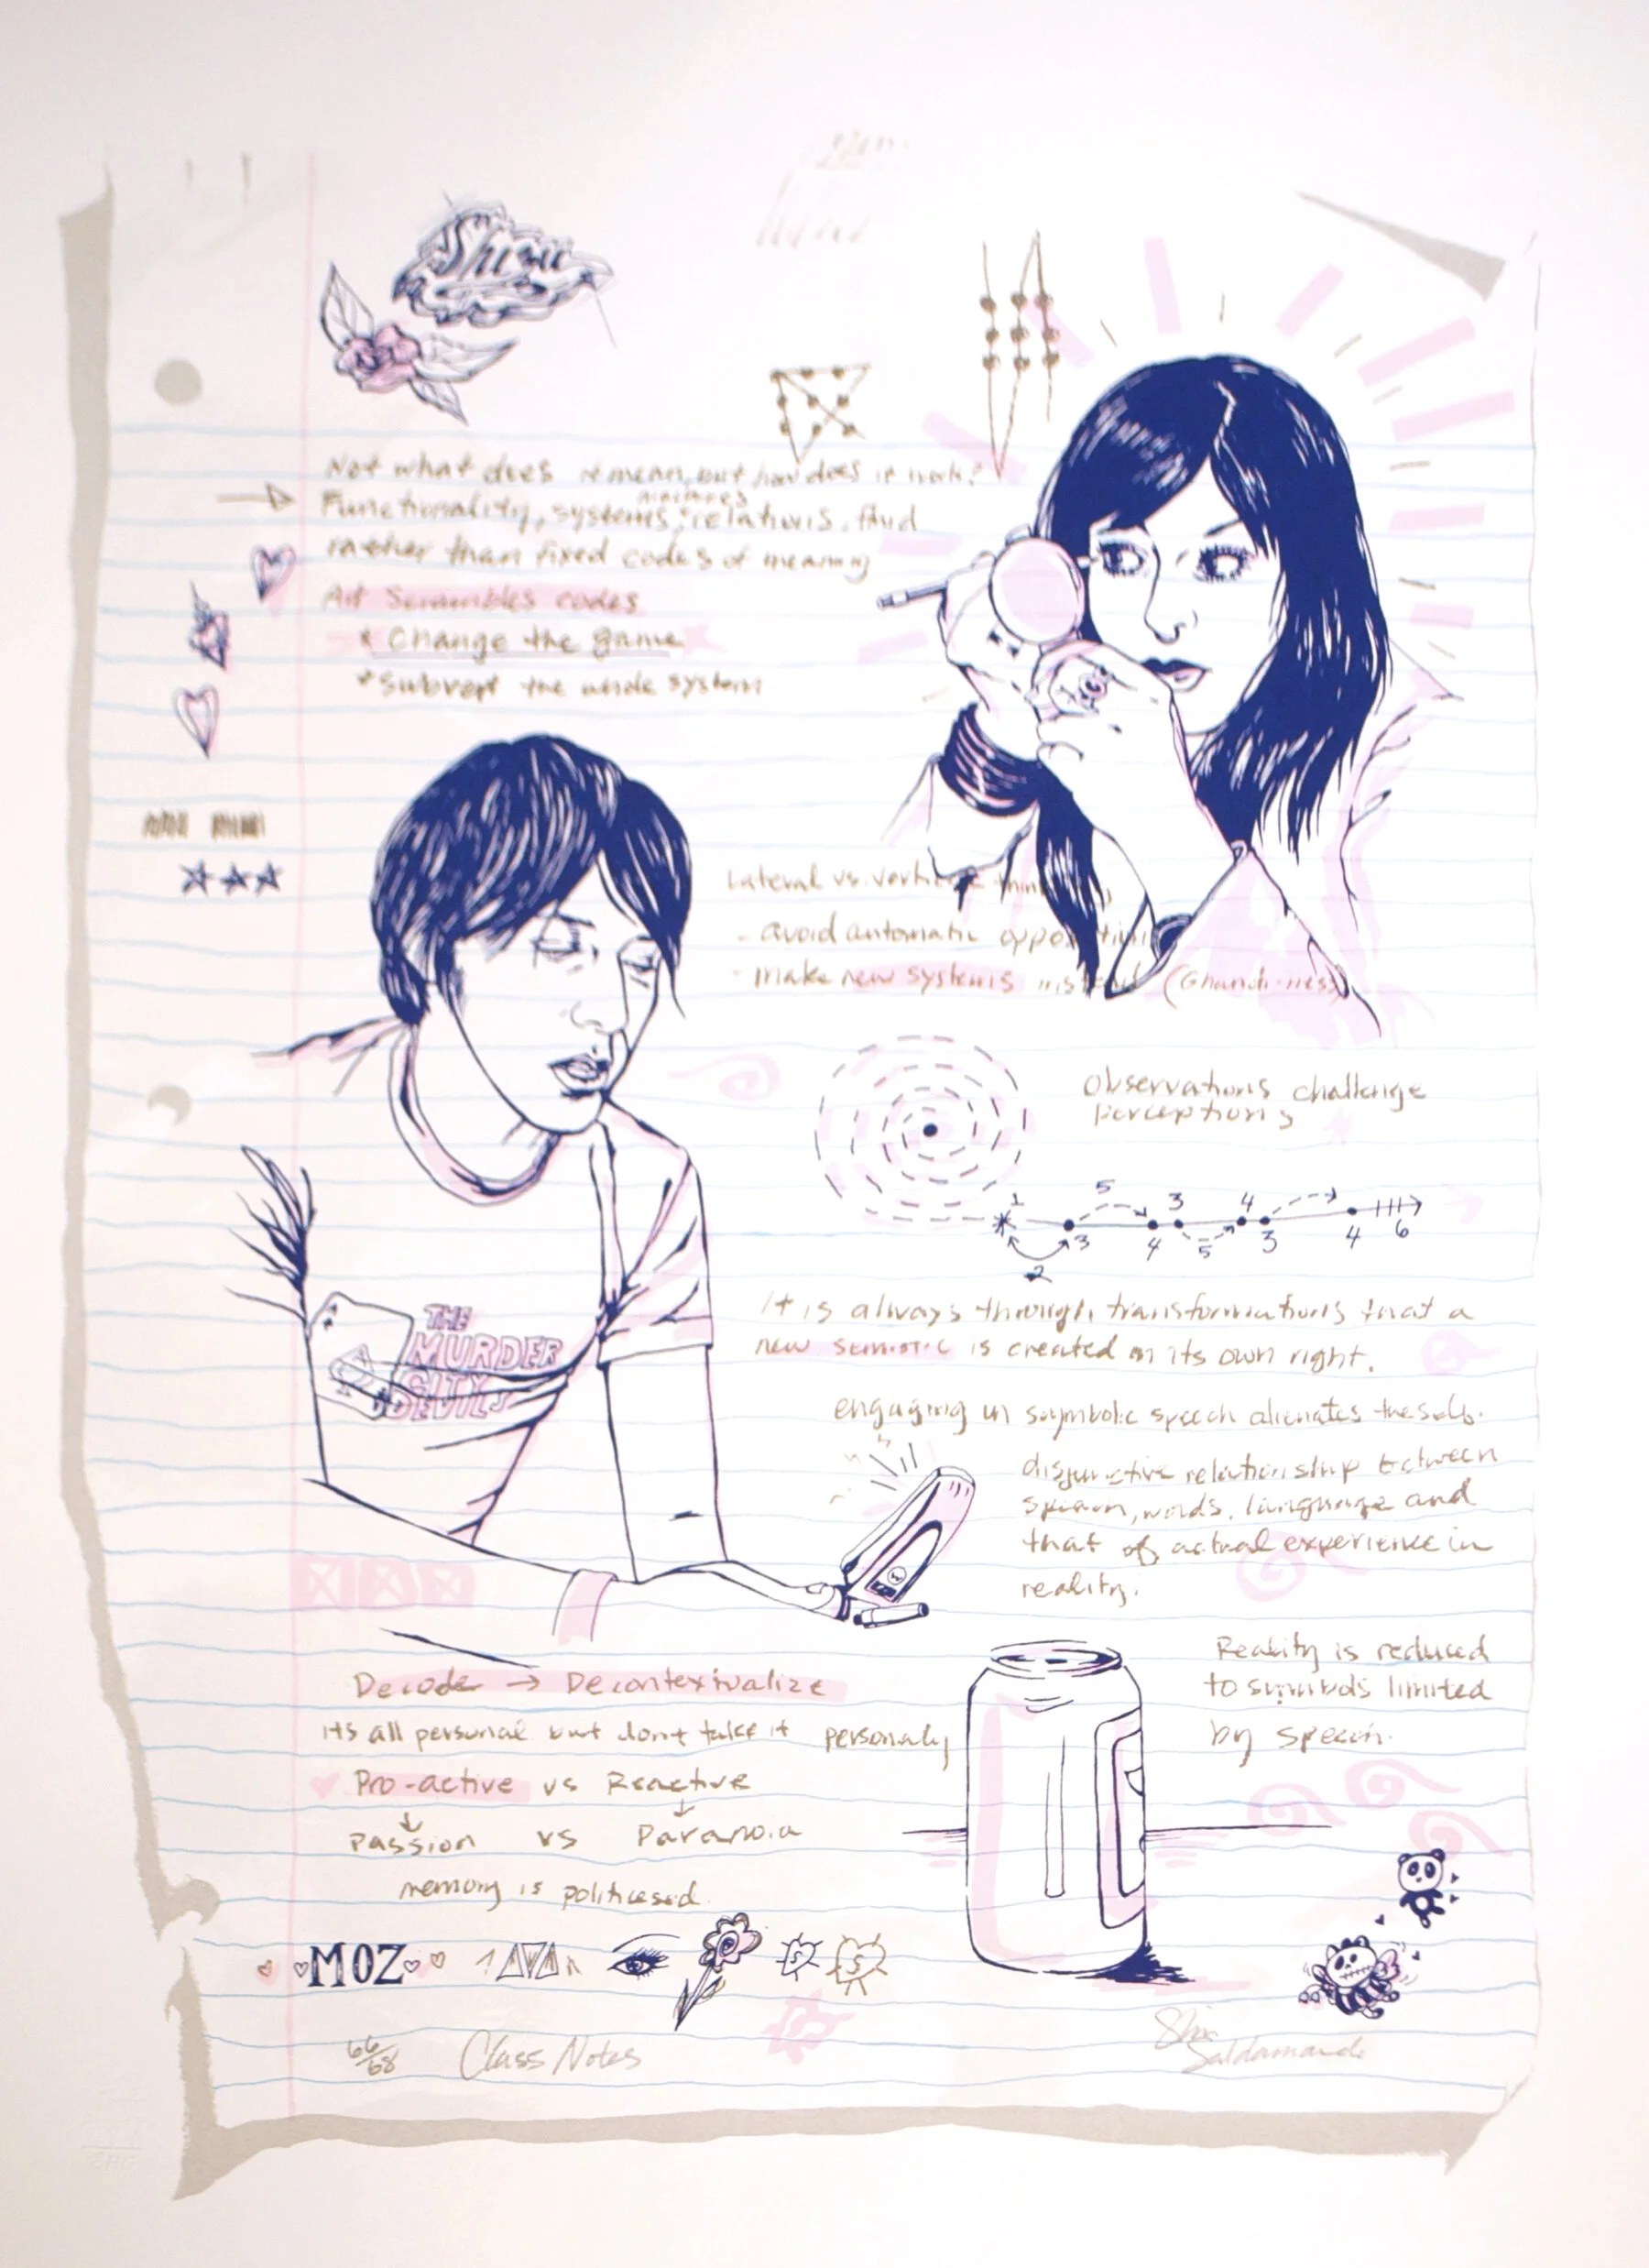 Shizu
Not what does it mean, but how does it work?
Functionality, systems, machines relations, fluid
rather than fixed codes of meaning
Art Scrambles codes
* Change the game
* Subvert the whole system
Lateral vs. vertical thin
- avoid automatic oppo
- make new systems inst (Ghandi-ness)
Observations challenge
perceptions
1 5 3 4
2 3 4 5 3 4 6
It is always through transformations that a
new semiotic is created in its own right.
engaging in symbolic speech alienates the self.
disjunctive relationship between
speech, words, language and
that of actual experience in
reality.
THE
MURDER
CITY
DEVILS
Reality is reduced
to symbols limited
by speech.
Decode → Decontextualize
its all personal but dont take it personaly
Pro-active vs Reactive
Passion vs Paranoia
memory is politicised.
MOZ
S S
66/68 Class Notes
Shizu
Saldamando